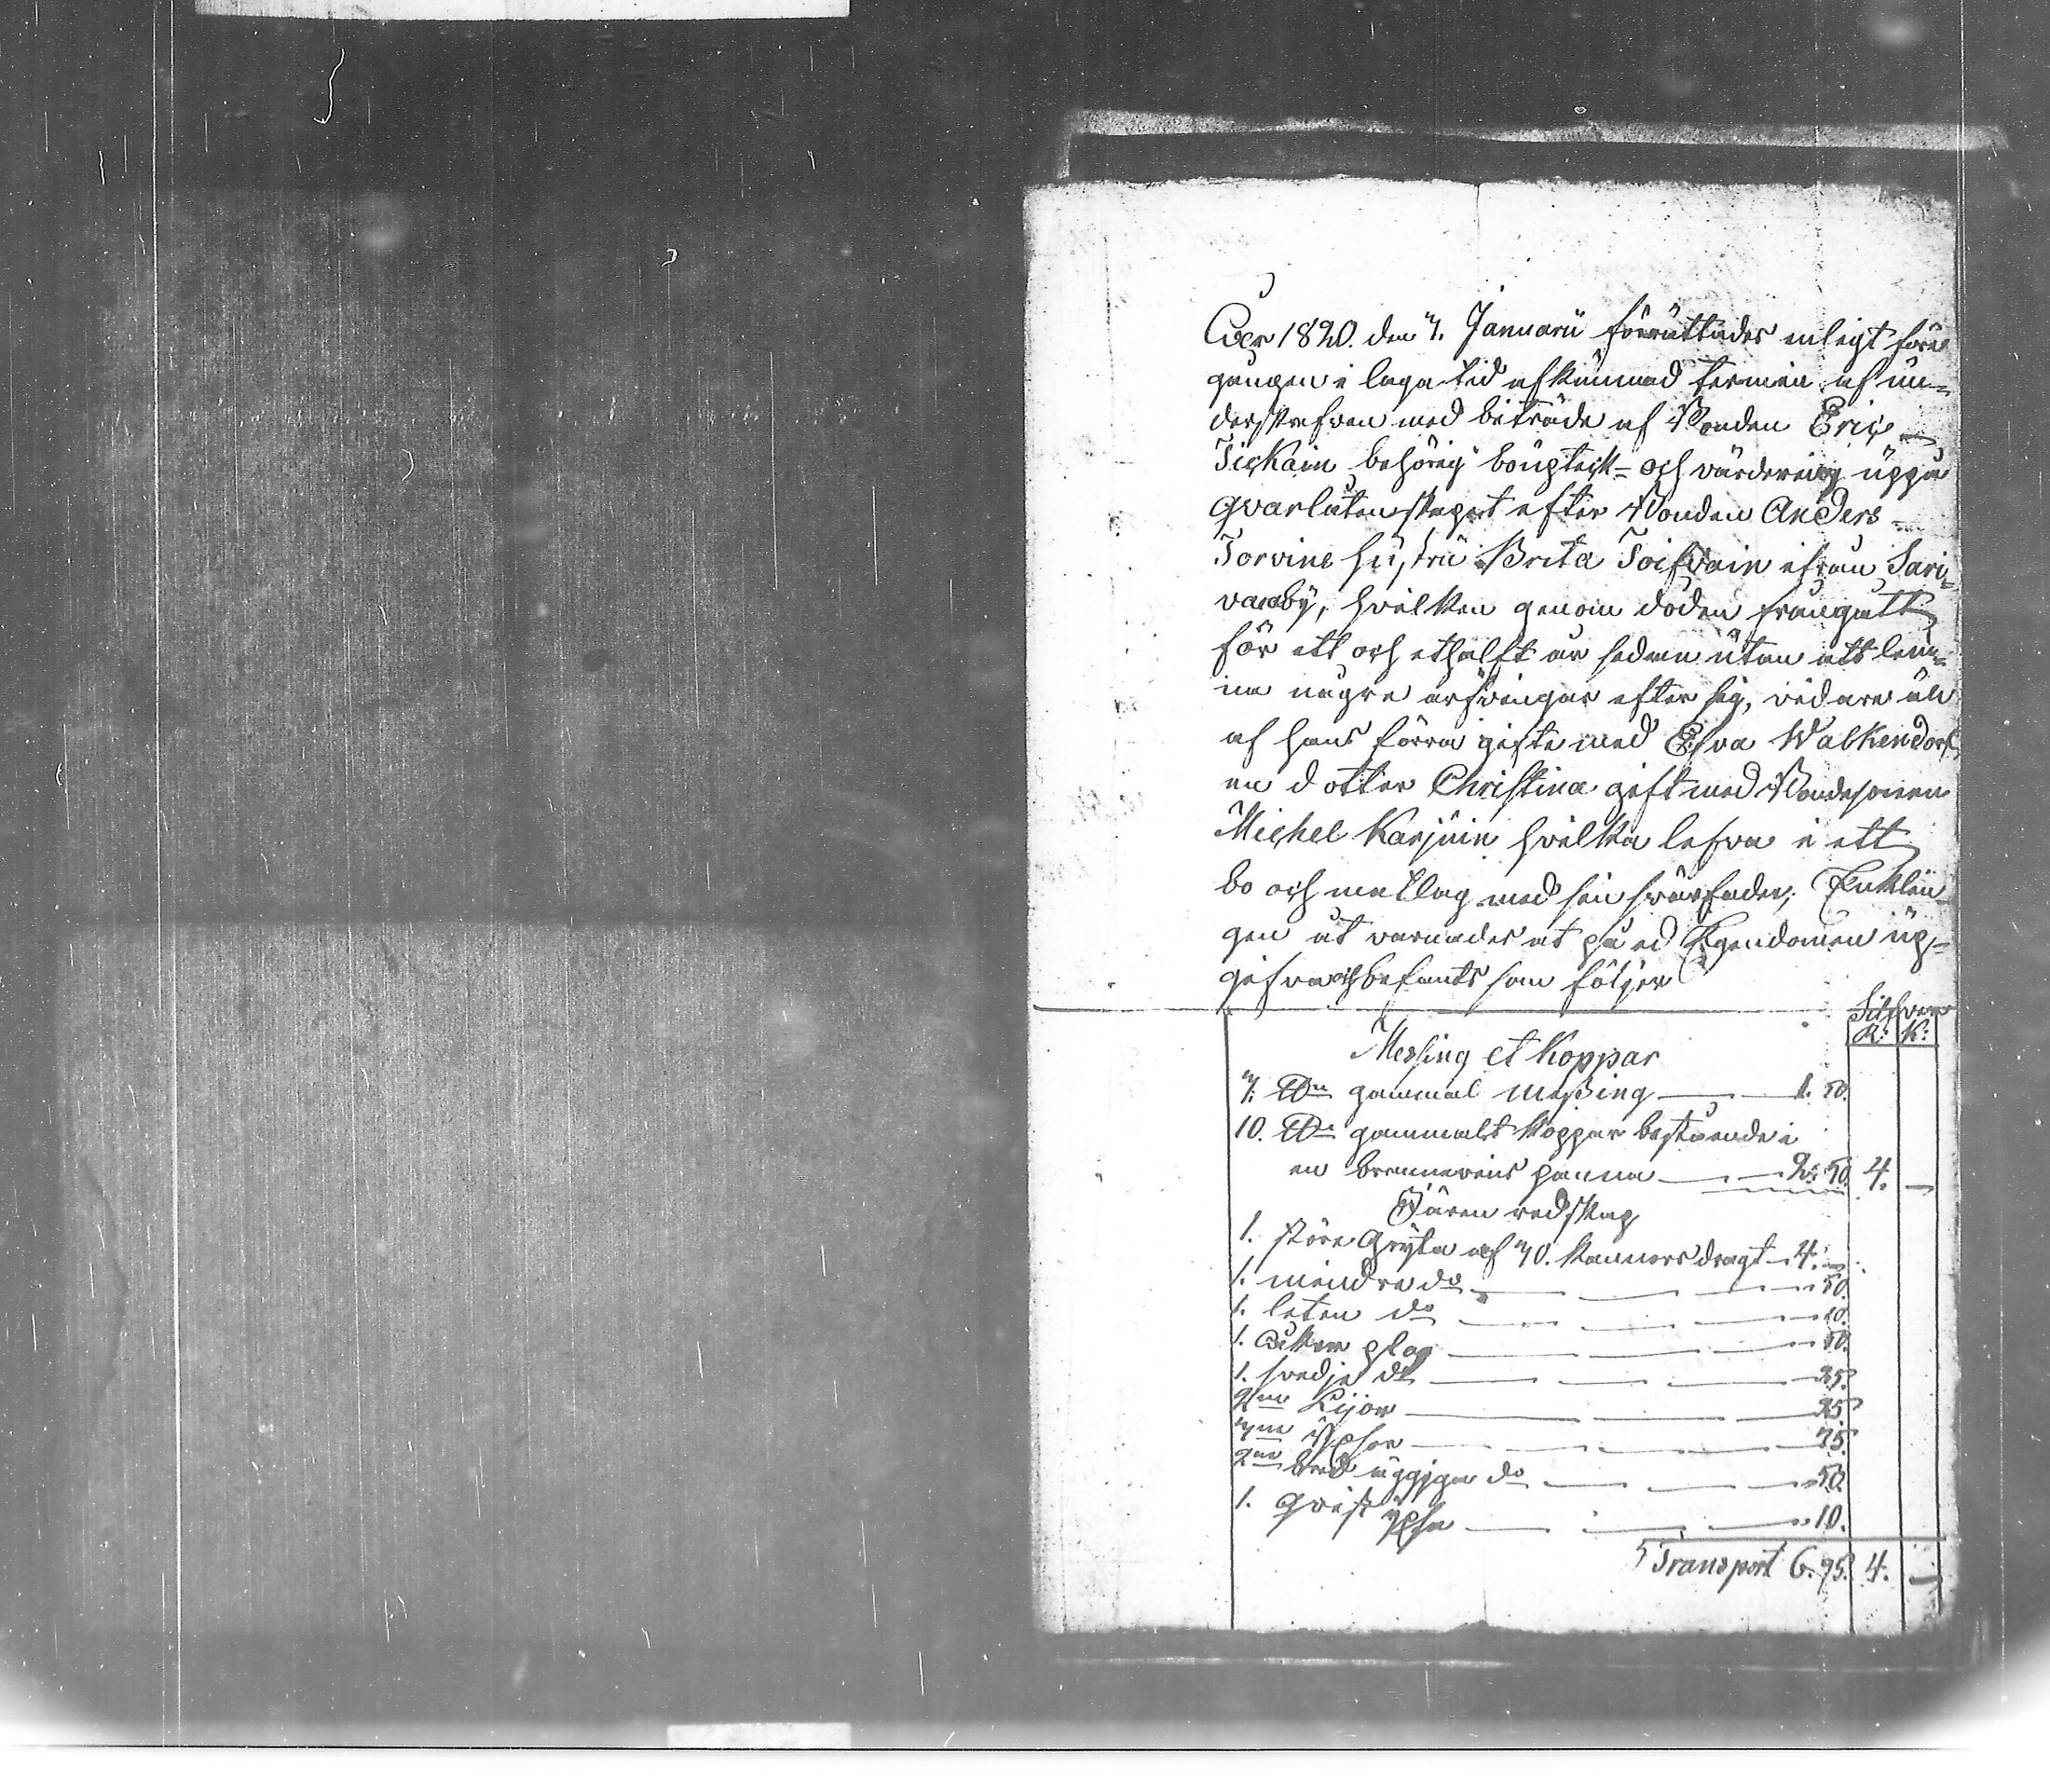 Åhr 1820. den 7. Januarii förrättades enligt före
gången i laga tid afkunnad termin af un-
derskrefven med biträde af Bonden Eric
Tickain behörig bouptekn- och värdering uppå
qvarlåtenskapet efter Bonden Anders
Torvines hustru Brita Toifvain ifrån Sari-
vaaraby, hvilken genom döden frångått
för ett och ethalft år sedan utan att lem-
na några arfvingar efter sig, vidare än
af hans förra gifte med Efva Walkendorf
en dotter Christina gift med Bondesonen
Michel Karjuin hvilka lefva i ett
bo och matlag med sin svärfader; Enklin-
gen åt varnades at på ed Egendomen up-
gifva och befants som följer
Silfver
R: K:
Messing et Koppar
7. ℔ gammal messing 1. 50.
10. ℔ gammalt koppar bestående i
en bränevins panna 2. 50. 4. —
Jären redskap
1. störe Gryta af 70. kannors dragt 4. —
1. mindre do 50.
1. liten do 10.
1. åker plog 50.
1. svedje do 25.
2ne Lijor 25
3ne Yxsor 75.
2ne bred äggiga do 50.
1. qvist yxsa 10.
Transport 6. 95. 4. —